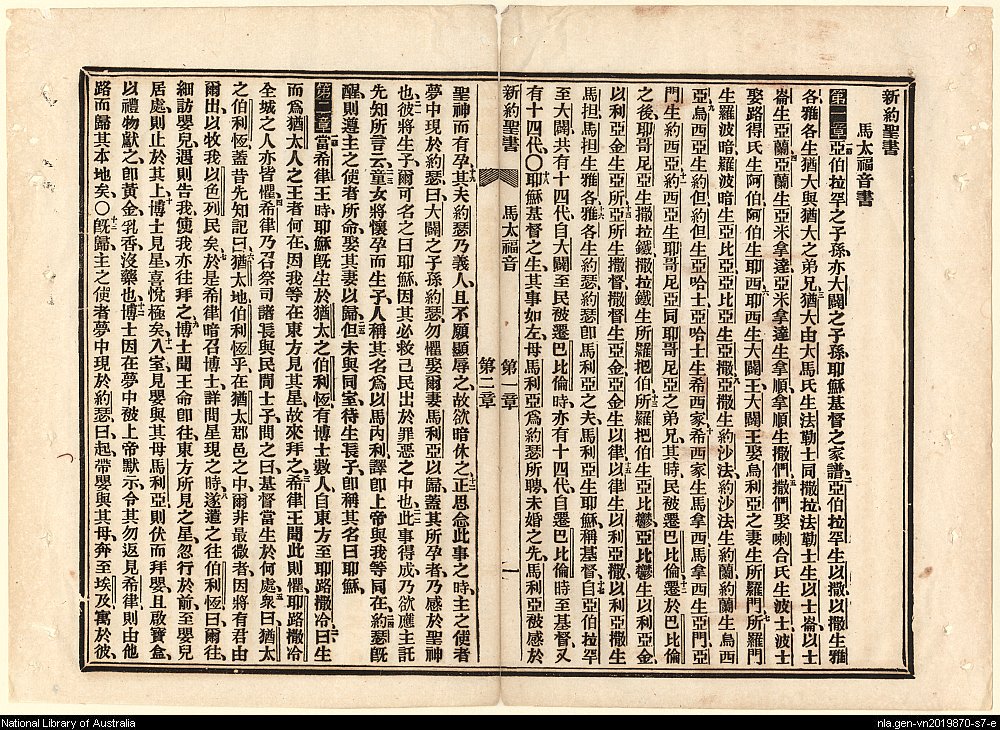 新約聖書
馬太福音書
第一章 亞伯拉罕之子孫亦大闢之子孫耶穌基督之家譜亞伯拉罕生以撒以撒生雅
各雅各生猶大與猶大之弟兄猶大由大馬氏生法勒士同撒拉法勒士生以士崙以士
崙生亞蘭亞蘭生亞米拿達亞米拿達生拿順拿順生撒們撒們娶喇合氏生波士波士
娶路得氏生阿伯阿伯生耶西耶西生大闢王大闢王娶烏利亞之妻生所羅門所羅門
生羅波暗羅波暗生亞比亞亞比亞生亞撒亞撒生約沙法約沙法生約蘭約蘭生烏西
亞烏西亞生約但約但生亞哈士亞哈士生希西家希西家生馬拿西馬拿西生亞門亞
門生約西亞約西亞生耶哥尼亞同耶哥尼亞之弟兄其時民被遷巴比倫遷於巴比倫
之後耶哥尼亞生撒拉鐵撒拉鐵生所羅把伯所羅把伯生亞比鬱亞比鬱生以利亞金
以利亞金生亞所亞所生撒督撒督生亞金亞金生以律以律生以利亞撒以利亞撒生
馬担馬担生雅各雅各生約瑟約瑟卽馬利亞之夫馬利亞生耶穌稱基督自亞伯拉罕
至大闢共有十四代自大闢至民被遷巴比倫時亦有十四代自遷巴比倫時至基督又
有十四代〇耶穌基督之生其事如左母馬利亞爲約瑟所聘未婚之先馬利亞被感於
新約聖書 馬太福音 第一章 一
第二章
聖神而有孕其夫約瑟乃義人且不願顯辱之故欲暗休之正思念此事之時主之使者
夢中現於約瑟曰大闢之子孫約瑟勿懼娶爾妻馬利亞以歸蓋其所孕者乃感於聖神
也彼將生子爾可名之曰耶穌因其必救己民出於罪惡之中也此事得成乃欲應主託
先知所言云童女將懷孕而生子人稱其名爲以馬內利譯卽上帝與我等同在約瑟旣
醒則遵主之使者所命娶其妻以歸但未與同室待生長子卽稱其名曰耶穌
第二章 當希律王時耶穌旣生於猶太之伯利恆有博士數人自東方至耶路撒冷曰生
而爲猶太人之王者何在因我等在東方見其星故來拜之希律王聞此則懼耶路撒冷
全城之人亦皆懼希律乃召祭司諸長與民間士子問之曰基督當生於何處衆曰猶太
之伯利恆蓋昔先知記曰猶太地伯利恆乎在猶太郡邑之中爾非最微者因將有君由
爾出以牧我以色列民矣於是希律暗召博士詳問星現之時遂遣之往伯利恆曰爾往
細訪嬰兒遇則告我使我亦往拜之博士聞王命卽往東方所見之星忽行於前至嬰兒
居處則止於其上博士見星喜悅極矣入室見嬰與其母馬利亞則伏而拜嬰且啟寶盒
以禮物獻之卽黃金乳香沒藥也博士因在夢中被上帝默示令其勿返見希律則由他
路而歸其本地矣〇旣歸主之使者夢中現於約瑟曰起帶嬰與其母奔至埃及寓於彼
National Library of Australia
nla.gen-vn2019870-s7-e